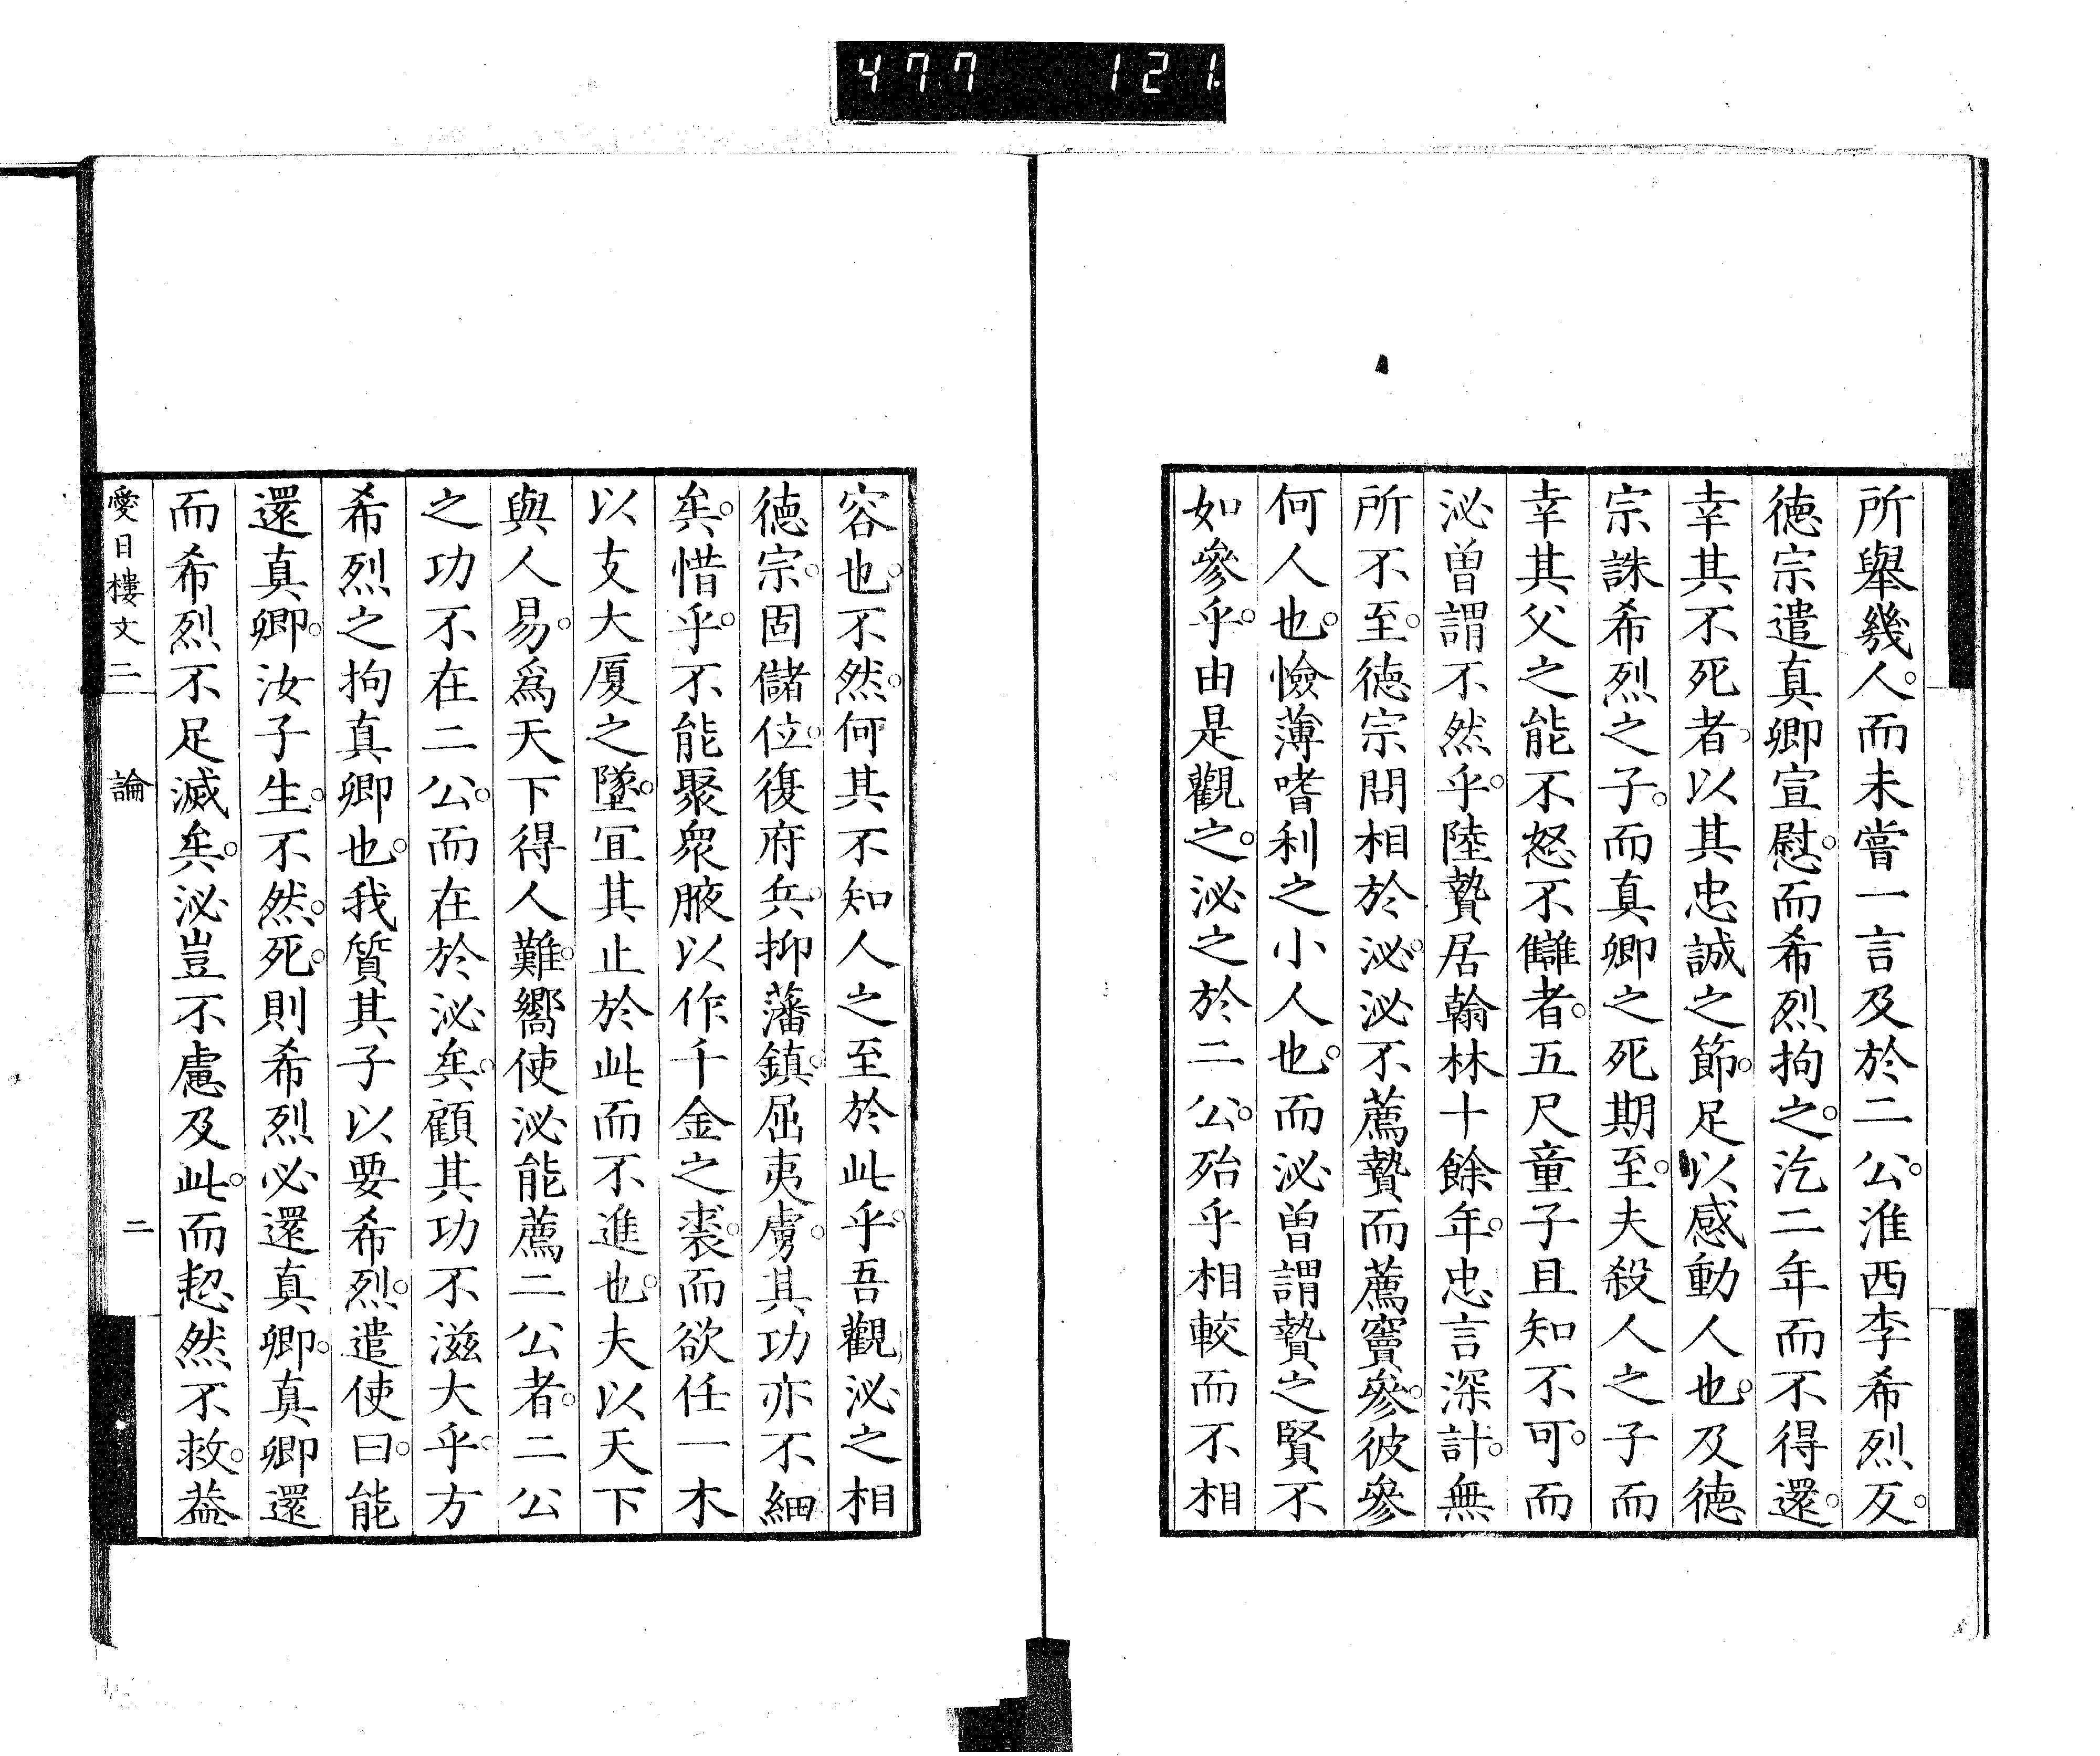 477 121
所舉幾人。而未嘗一言及於二公。淮西李希烈反。
徳宗遣真卿宣慰。而希烈拘之。汔二年而不得還。
幸其不死者。以其忠誠之節。足以感動人也。及徳
宗誅希烈之子。而真卿之死期至。夫殺人之子而
幸其父之能不怒不讎者。五尺童子且知不可。而
泌曽謂不然乎。陸贄居翰林十餘年。忠言深計。無
所不至。徳宗問相於泌。泌不薦贄而薦竇參。彼參
何人也。憸薄嗜利之小人也。而泌曽謂贄之賢不
如參乎。由是觀之。泌之於二公。殆乎相較而不相
容也。不然。何其不知人之至於此乎。吾觀泌之相
徳宗。固儲位。復府兵。抑藩鎮。屈夷虜。其功亦不細
矣。惜乎。不能聚衆腋以作千金之裘。而欲任一木
以支大厦之墜。宜其止於此而不進也。夫以天下
與人易。爲天下得人難。嚮使泌能薦二公者。二公
之功不在二公。而在於泌矣。顧其功不滋大乎。方
希烈之拘真卿也。我質其子以要希烈。遣使曰。能
還真卿。汝子生。不然。死。則希烈必還真卿。真卿還
而希烈不足滅矣。泌豈不慮及此。而恝然不救。蓋
愛日樓文二 論 二